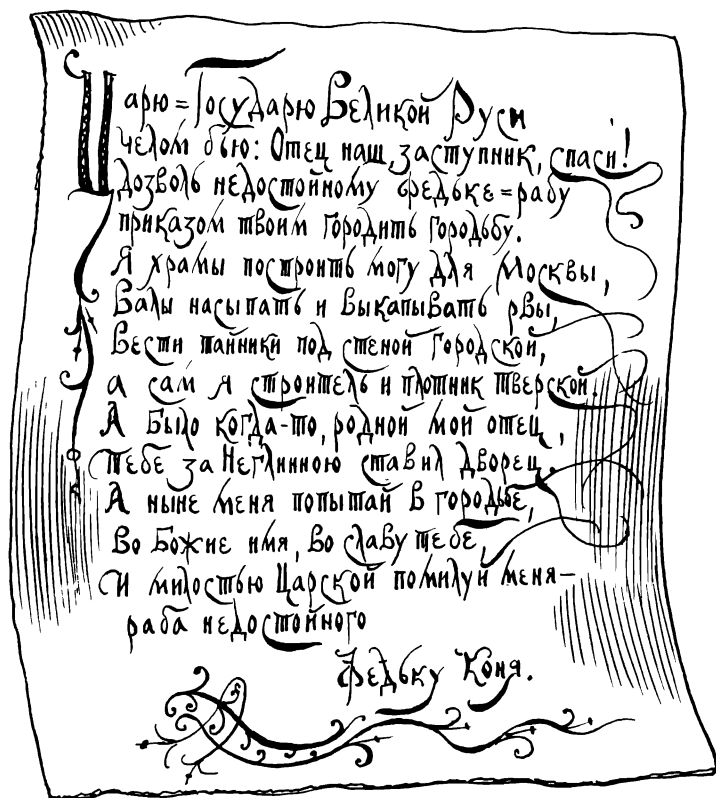 Царю=Государю Великой Руси
челом бью: Отец наш, заступник, спаси!
дозволь недостойному Федьке=рабу
приказом твоим городить городьбу.
Я храмы построить могу для Москвы,
Валы насыпать и выкапывать рвы,
Вести тайники под стеной городской,
а сам я строитель и плотник Тверской.
А было когда-то, родной мой отец,
Тебе за Неглинною ставил дворец.
А ныне меня попытай в городьбе,
Во Божие имя, во славу тебе,
И милостью Царской помилуй меня—
раба недостойного
Федьку Коня.